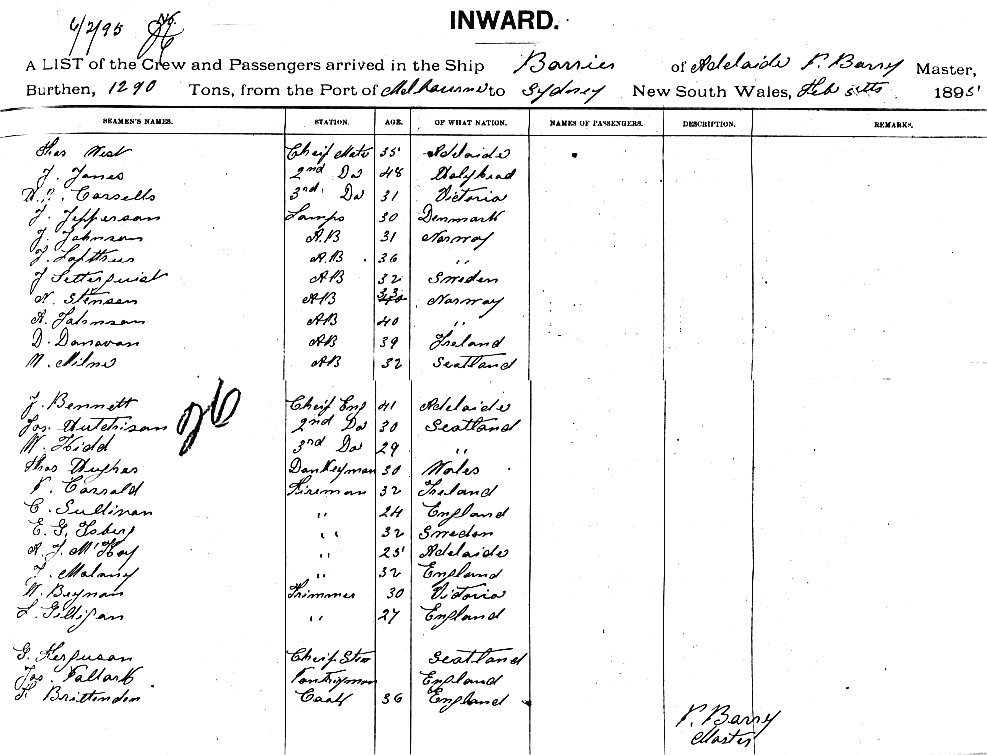 6/2/95
INWARD.
A LIST of the Crew and Passengers arrived in the Ship Barrier of Adelaide P. Barry Master,
Burthen, 1290 Tons, from the Port of Melbourne to Sydney New South Wales, Feb 1895
SEAMEN'S NAMES. STATION. AGE. OF WHAT NATION. NAMES OF PASSENGERS. DESCRIPTION. REMARKS.
Thos West Cheif Mate 35 Adelaide
J. Jones 2nd Do 48 Holyhead
Cassells 3rd Do 31 Victoria
J. Jepperson Lamps 30 Denmark
J. Johnson A.B 31 Norway
J. A.B. 36 "
J A.B 32 Sweden
N. Stenson A.B 33 Norway
A. Johnson A.B 40 "
D. Donovan A.B 39 Ireland
M. Milne A.B 32 Scotland
J. Bennett Cheif Eng 41 Adelaide
Jos. Hutchison 2nd Do 30 Scotland
W. Kidd 3rd Do 29 "
Thos Hughes Donkeyman 30 Wales
P. Carrald Fireman 32 Ireland
C. Sullivan " 24 England
E. G. Isberg " 32 Sweden
A. J. McKoy " 25 Adelaide
J. Malony " 32 England
W. Beynon Trimmer 30 Victoria
L. Gilligan " 27 England
G. Ferguson Cheif Stew Scotland
Jos. Pallark Pantryman England
Brittenden Cook 36 England
P. Barry
Master